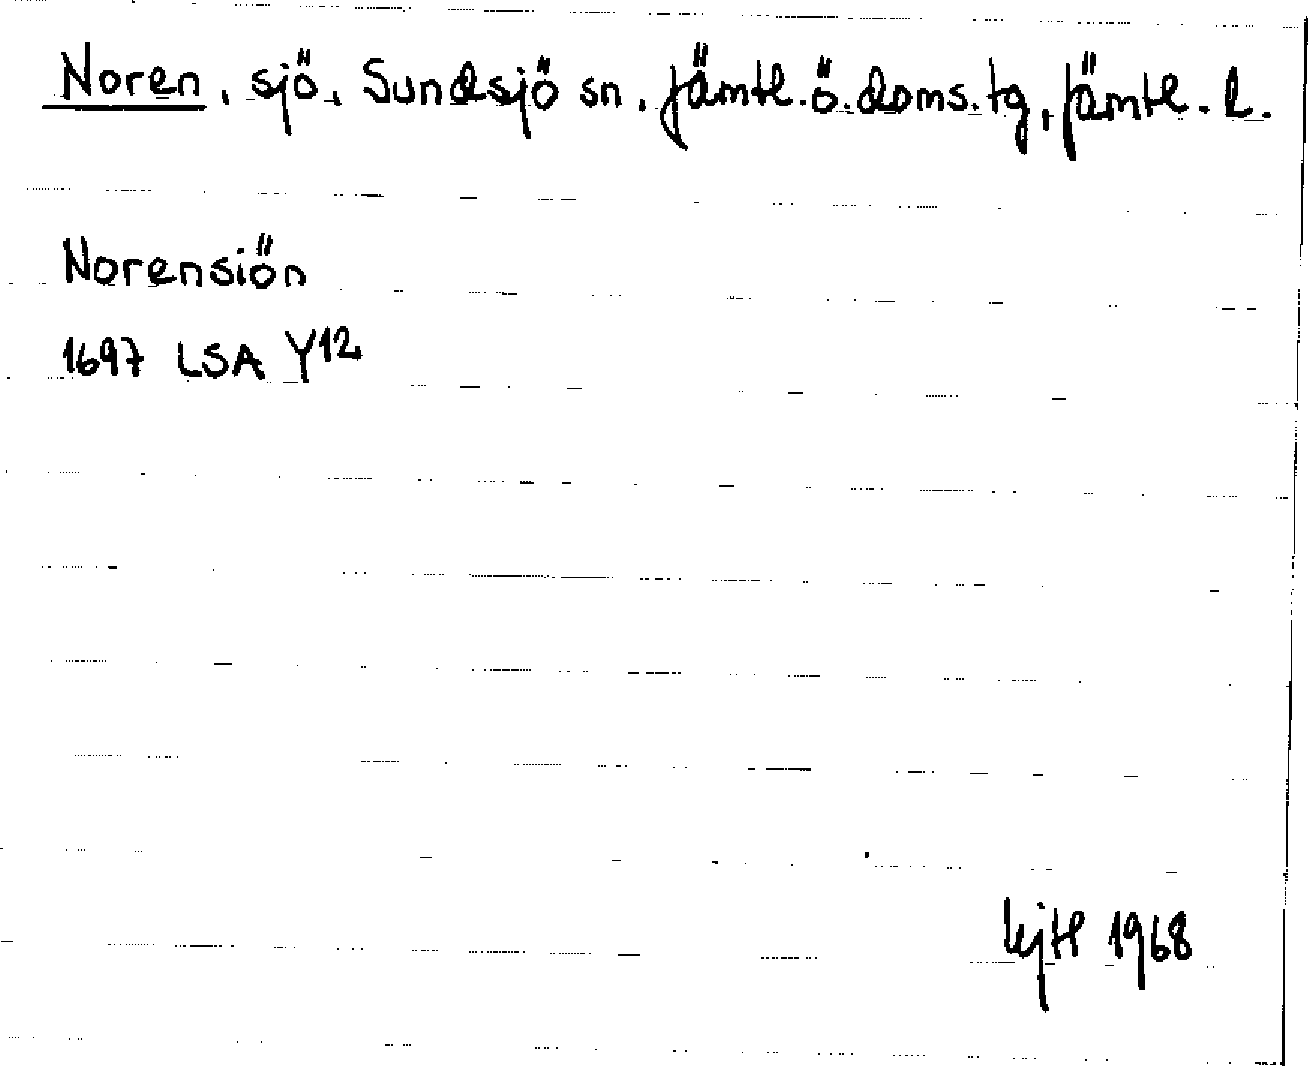 Noren, sjö, Sundsjö sn, Jämtl. ö. doms. tg, Jämtl. l.
Norensiön
1697 LSA Y12
1968